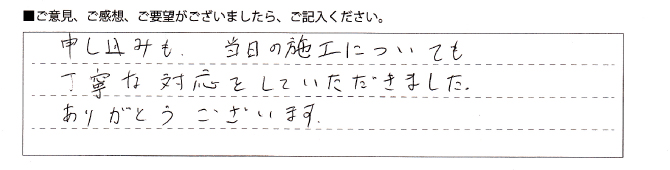 ■ご意見、ご感想、ご要望がございましたら、ご記入ください。
申し込みも、当日の施工についても
丁寧な対応をしていただきました。
ありがとうございます。